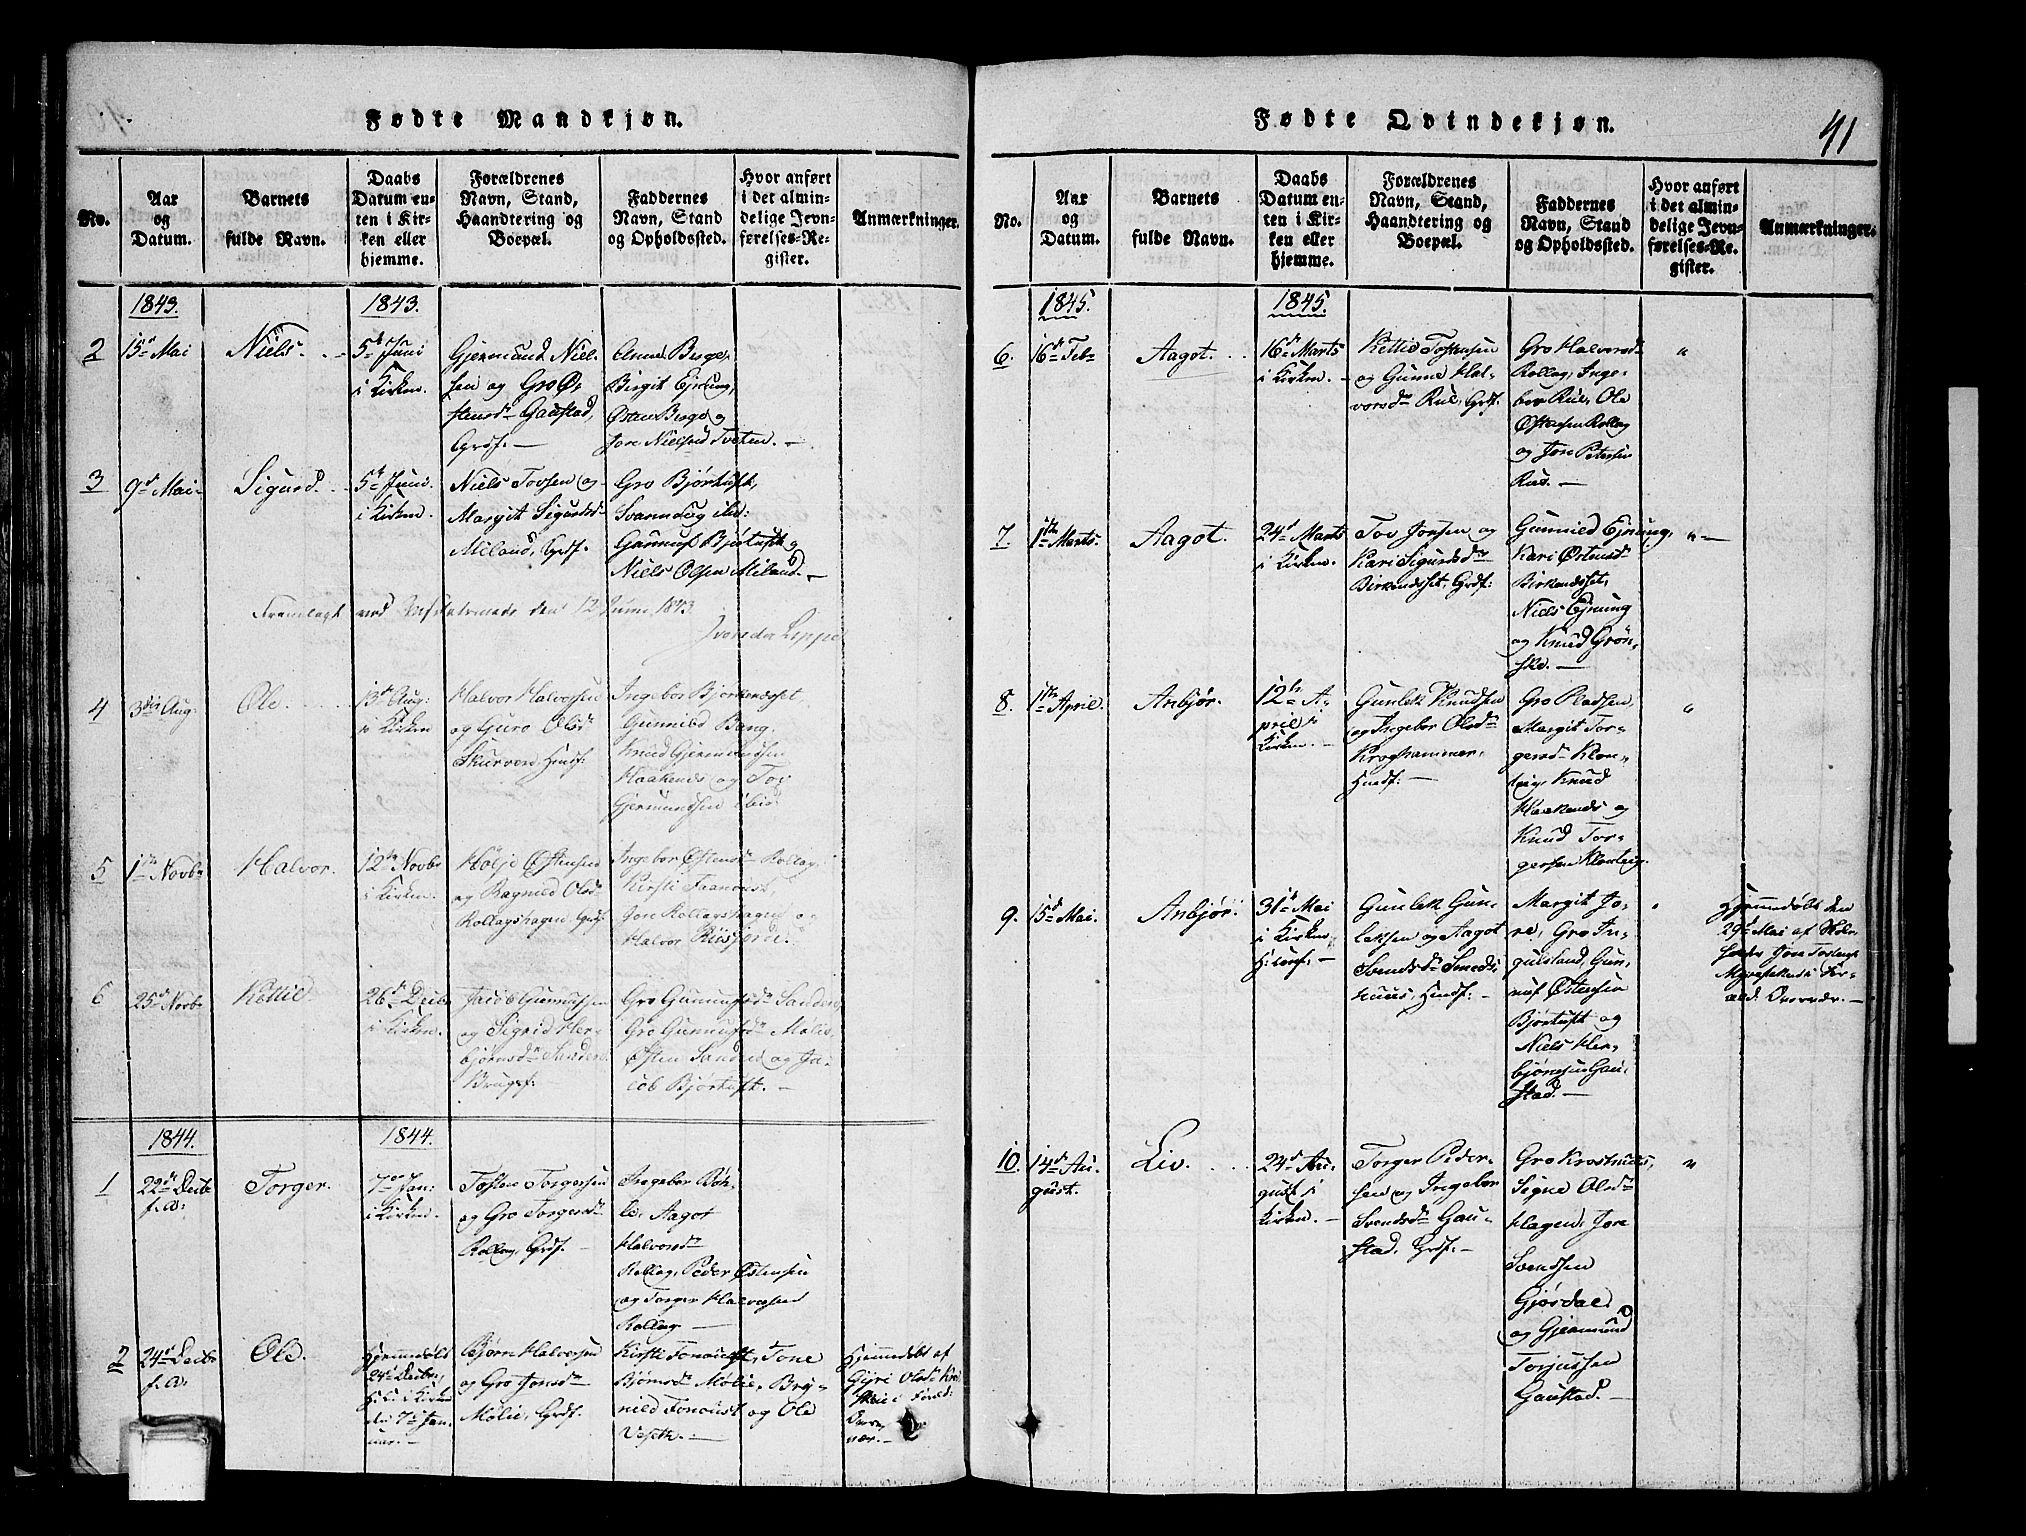 Fødte Mandkjøn.
No.
Aar
og
Datum.
Barnets
fulde Navn.
Daabs
Datum en-
ten i Kir-
ken eller
hjemme.
Forældrenes
Navn, Stand,
Haandtering og
Boepæl.
Faddernes
Navn, Stand
og Opholdssted.
Hvor anført
i det almin-
delige Jevn-
førelses-Re-
gister.
Anmærkninger.
1843.
1843.
2
15d Mai
Niels.
5t Juni
i Kirken.
Gjermund Niel-
sen og Gro Ø-
stensdr Gaustad,
Grdf.
Anne Berge,
Birgit Ejrung,
Østen Berge og
Jon Nielsen Tveten.
3
9d Mai
Sigurd.
5t Juni
i Kirken.
Niels Tovsen og
Margit Sigurdsdr
Miland, Grdf.
Gro Bjørtuft,
Svanaug ibid:
Gunnuf Bjørtuft og
Niels Olsen Miland.
Fremlagt ved
den 12 Juni 1843.
4
3die Aug:
Ole.
13d Aug:
i Kirken
Halvor Halvorsen
og Guro Olsdr
Skurven, Husf:
Ingebor Bjørkendsset,
Gunnild Bang,
Knud Gjermundsen
Haakenes og Tov
Gjermundsen ibid:
5
1ste Novbr
Halvor.
12te Novbr
i Kirken.
Hølje Østensen
og Ragnild Olsdr
Rollagshagen, Grdf.
Ingebor Østensdr Rollag,
Kirsti Faanoust,
Jon Rollagshagen og
Halvor Riisjord.
6
25d Novbr
Kittil.
26d Decbr
i Kirken.
Jacob Gunnufsen
og Sigrid Her-
bjørnsdr Sanden,
Brugsf:
Gro Gunnufsdr Sanden,
Gro Gunnufsdr Mølie,
Østen Sanden og Ja-
cob Bjørtuft.
1844.
1844.
1
22d Decbr
f. A:
Torger.
7de Jan:
i Kirken.
Tosten Torgersen
og Gro Torgersdr
Rollag, Grdf.
Ingebor Bøh-
le, Aagot
Halvorsdr
Rollag, Peder Østensen
og Torger Halvorsen
Rollag.
2
24d Decbr
f. A:
Ole.
Hjemmedøbt
24d Decbr,
i Kirken
den 7de Jan-
uar.
Bjørn Halvorsen
og Gro Jonsdr
Mølie, Grdf.
Kirsti Fonoust, Tone
Bjørnsdr Mølie, Bry-
nild Fonoust og Ole
Veseth.
Hjemmedøbt af
Gyri Olsdr
i Foræld:
Over-
vær.
Fødte Qvindekjøn.
41
No.
Aar
og
Datum.
Barnets
fulde Navn.
Daabs
Datum en-
ten i Kir-
ken eller
hjemme.
Forældrenes
Navn, Stand,
Haandtering og
Boepæl.
Faddernes
Navn, Stand
og Opholdssted.
Hvor anført
i det almin-
delige Jevn-
førelses-Re-
gister.
Anmærkninger.
1845.
1845.
6.
16d Feb
Aagot.
16d Marts
i Kirken.
Kittil Tostensen
og Gunne Hal-
vorsdr Rue, Grdf.
Gro Halvorsdr
Rollag, Inge-
bor Rue, Ole
Østensen Rollag
og Jon Petersen
Rue.
"
7.
1ste Marts.
Aagot.
24d Marts
i Kirken.
Tov Jonsen og
Kari Sigurdsdr
Birkendsset, Grdf:
Gunnild Ejrung,
Kari Østensdr
Birkendsset,
Niels Ejrung
og Knud Grøn-
skei.
"
8.
1ste April.
Anbjør.
12te A-
pril i
Kirken.
Gunlek Knudsen
og Ingebor Olsdr
Kroghammer,
Husf:
Gro Pladsen,
Margit Tor-
gersdr Klon-
teig, Knud
Haakenes og
Knud Tor-
gersen Klonteig.
"
9.
15d Mai.
Anbjør.
31d Mai
i Kirken.
Gunlek Gun-
leksen og Aagot
Svendsdr Smeds-
huus, Husf:
Margit Jo-
re, Gro In-
gulsland, Gun-
nuf Østensen
Bjørtuft og
Niels Her-
bjørnsen Gau-
stad.
"
Hjemmedøbt den
29d Mai af Skole-
lærer Jon Tostens:
i For-
æld. Overvær.
10.
14d Au-
gust.
Liv.
24d Au-
gust i
Kirken.
Torger Peder-
sen og Ingebor
Svendsdr Gau-
stad, Grdf:
Gro Kroshuus,
Signe Olsdr
Hagen, Jon
Svendsen
Gjørdal
og Gjermund
Torjussen
Gaustad.
"